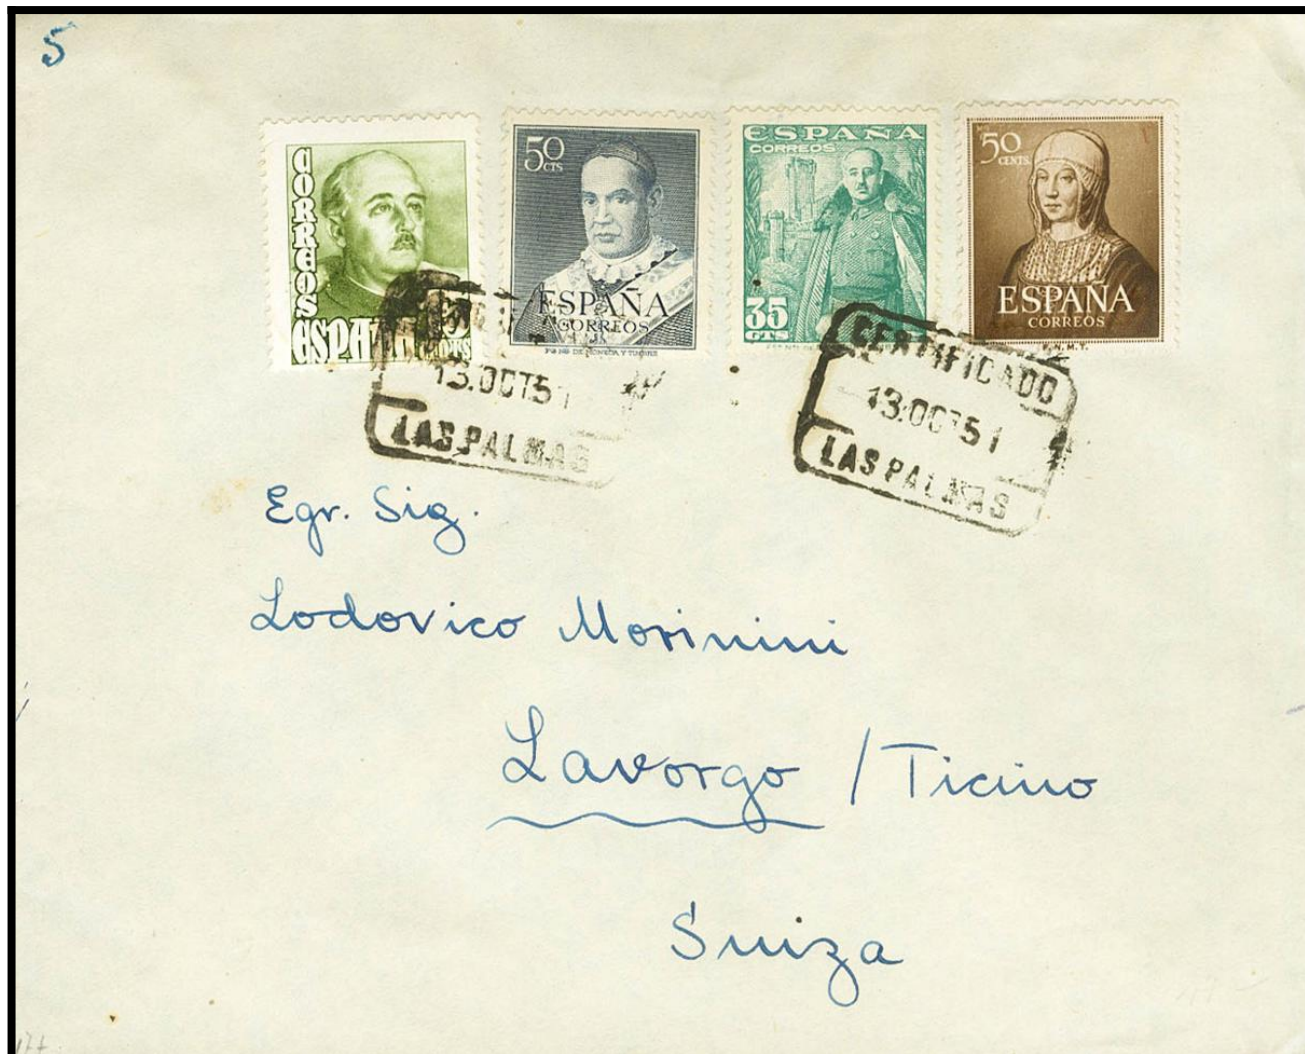 5
CORREOS
ESPAÑA
CTS
50
CTS
ESPAÑA
CORREOS
ESPAÑA
CORREOS
35
CTS
50
CENTS.
ESPAÑA
CORREOS
F.N.M.T.
13.OCT51
LAS PALMAS
CERTIFICADO
13.OCT51
LAS PALMAS
Egr. Sig.
Lodovico Morinini
Lavorgo / Ticino
Suiza